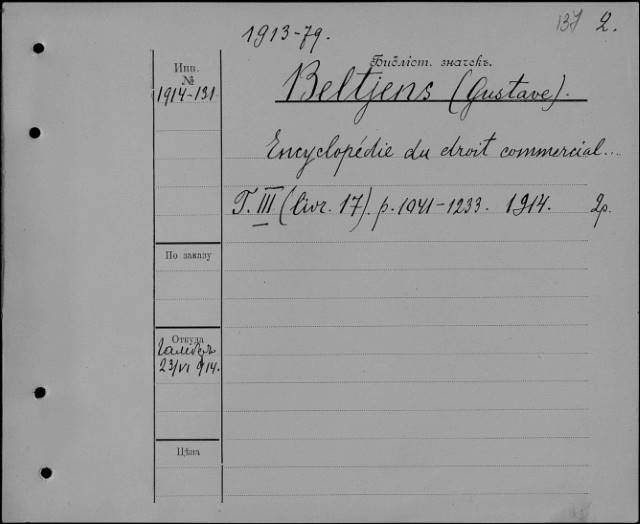 1913-79.
137 2.
Библіот. значекъ.
Инв.
№
1914-131
Beltjens (Gustave).
Encyclopédie du droit commercial...
T. III (livr. 17). p. 1041-1233. 1914. 2р.
По заказу
Откуда
23/VI 914.
Цѣна